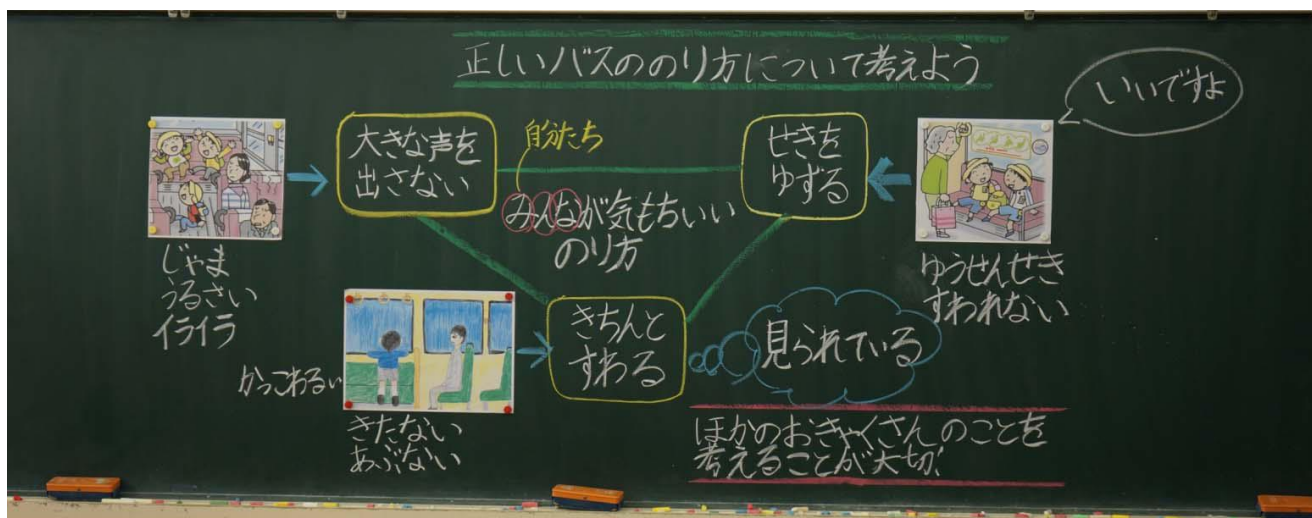 正しいバスののり方について考えよう
いいですよ
大きな声を
出さない
自分たち
せきを
ゆずる
みんなが気もちいい
のり方
じゃま
うるさい
イライラ
ゆうせんせき
すわれない
きちんと
すわる
見られている
かっこわるい
きたない
あぶない
ほかのおきゃくさんのことを
考えることが大切